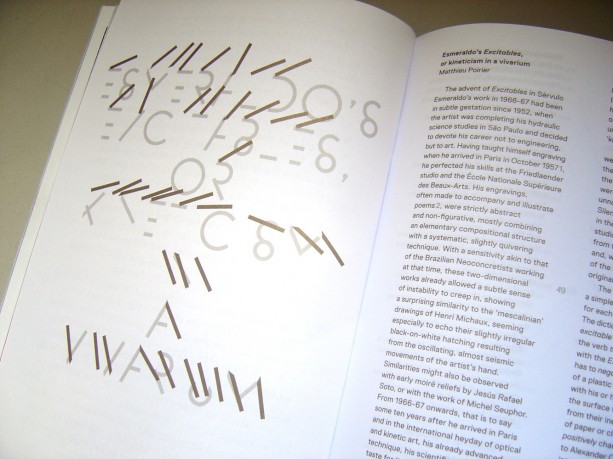 ESMERALDO'S
EXCITABLES,
OR
KINETICISM
IN
A
VIVARIUM
Esmeraldo's Excitables,
or kineticism in a vivarium
Matthieu Poirier
The advent of Excitables in Sérvulo
Esmeraldo's work in 1966–67 had been
in subtle gestation since 1952, when
the artist was completing his hydraulic
science studies in São Paulo and decided
to devote his career not to engineering,
but to art. Having taught himself engraving
when he arrived in Paris in October 19571,
he perfected his skills at the Friedlaender
studio and the École Nationale Supérieure
des Beaux-Arts. His engravings,
often made to accompany and illustrate
poems2, were strictly abstract
and non-figurative, mostly combining
an elementary compositional structure
with a systematic, slightly quivering
technique. With a sensitivity akin to that
of the Brazilian Neoconcretists working
at that time, these two-dimensional
works already allowed a subtle sense
of instability to creep in, showing
a surprising similarity to the 'mescalinian'
drawings of Henri Michaux, seeming
especially to echo their slightly irregular
black-on-white hatching resulting
from the oscillating, almost seismic
movements of the artist's hand.
Similarities might also be observed
with early moiré reliefs by Jesús Rafael
Soto, or with the work of Michel Seuphor.
From 1966–67 onwards, that is to say
some ten years after he arrived in Paris
and in the international heyday of optical
and kinetic art, his already advanced
technique, his scientific
taste for
49
The
a simple
for each
The dict
excitable
the verb
with the E
has to nego
of a plastic
with his or h
the surface
from their in
of paper or cl
positively char
to Alexander